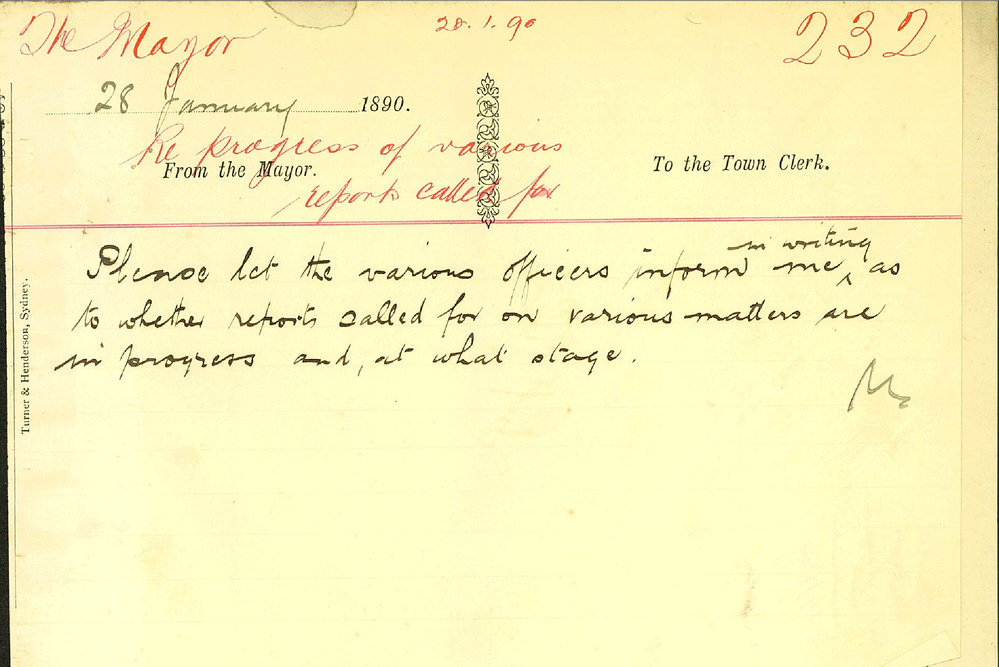 The Mayor
28.1.90
232
28 January 1890.
Re progress of various
From the Mayor.
To the Town Clerk.
reports called for
in writing
Please let the various officers inform me ^ as
to whether reports called for on various matters are
in progress and, at what stage.
Turner & Henderson, Sydney.